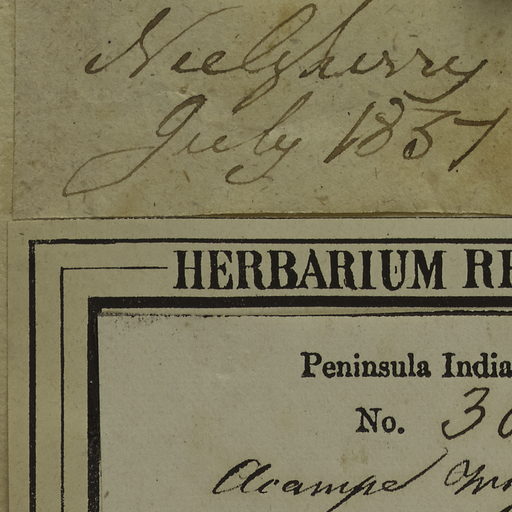 Neelgherry
July 1837
HERBARIUM
Peninsula India
No. 3
Acampe